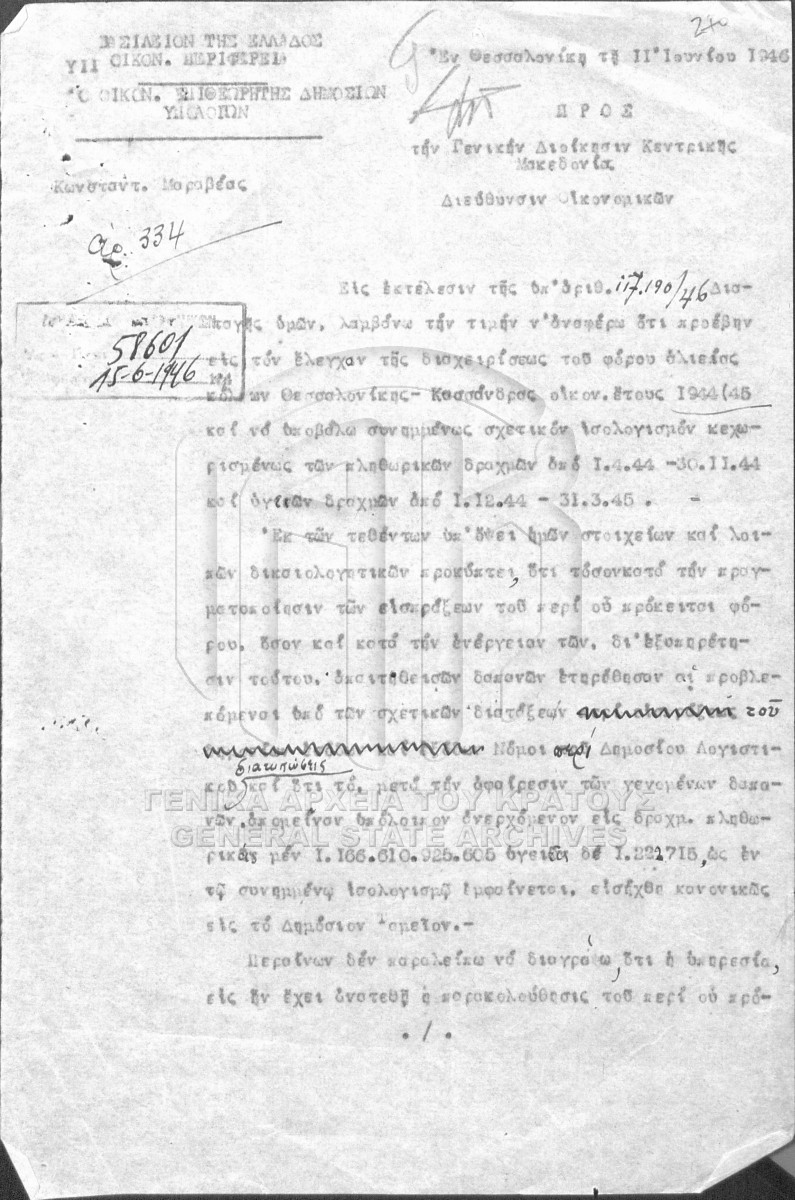 ΒΑΣΙΛΕΙΟΝ ΤΗΣ ΕΛΛΑΔΟΣ
ΥΙΙ ΟΙΚΟΝ. ΠΕΡΙΦΕΡΕΙΑ
Ὁ ΟΙΚΟΝ. ΕΠΙΘΕΩΡΗΤΗΣ ΔΗΜΟΣΙΩΝ
ΥΠΟΛΟΓΩΝ
Κωνσταντ. Μαραβέας
ἀρ. 334
58601
15-6-1946
Ἐν Θεσσαλονίκῃ τῇ ΙΙ Ἰουνίου 1946
ΠΡΟΣ
τήν Γενικήν Διοίκησιν Κεντρικῆς
Μακεδονία
Διεύθυνσιν Οἰκονομικῶν
Εἰς ἐκτέλεσιν τῆς ὑπ'ἀριθ. 117.190/46 Δια-
ταγῆς ὑμῶν, λαμβάνω τήν τιμήν ν'ἀναφέρω ὅτι προέβην
εἰς τόν ἔλεγχον τῆς διαχειρίσεως τοῦ φόρου ἁλιείας
κόλπων Θεσσαλονίκης- Κασσάνδρας οἰκον.ἔτους I944(45
καί νά ὑποβάλω συνημμένως σχετικόν ἰσολογισμόν κεχω-
ρισμένως τῶν πληθωρικῶν δραχμῶν ἀπό I.4.44 -30.II.44
καί ὑγιῶν δραχμῶν ἀπό I.I2.44 - 3I.3.45 . -
Ἐκ τῶν τεθέντων ὑπ'ὄψει ἡμῶν στοιχείων καί λοι-
πῶν δικαιολογητικῶν προκύπτει, ὅτι τόσονκατά τήν πραγ-
ματοποίησιν τῶν εἰσπράξεων τοῦ περί οὗ πρόκειται φό-
ρου, ὅσον καί κατά τήν ἐνέργειαν τῶν, δι'ἐξυπηρέτη-
σιν τούτου, ἀπαιτηθεισῶν δαπανῶν ἐτηρήθησαν αἱ προβλε-
πόμεναι ὑπό τῶν σχετικῶν διατάξεων τοῦ
Νόμου περί Δημοσίου Λογιστι-
κοῦ διατυπώσεις καί ὅτι τό, μετά τήν ἀφαίρεσιν τῶν γενομένων δαπα-
νῶν, ἀπομεῖναν ὑπόλοιπον ἀνερχόμενον εἰς δραχμ. πληθω-
ρικάς μέν I.I66.6I0.925.605 ὑγειεῖς δέ I.222715, ὡς ἐν
τῷ συνημμένῳ ἰσολογισμῷ ἐμφαίνεται, εἰσήχθη κανονικῶς
εἰς τό Δημόσιον Ταμεῖον.-
Περαίνων δέν παραλείπω νά διαγράψω, ὅτι ἡ ὑπηρεσία,
εἰς ἥν ἔχει ἀνατεθῇ ἡ παρακολούθησις τοῦ περί οὗ πρό-
./.
ΓΕΝΙΚΑ ΑΡΧΕΙΑ ΤΟΥ ΚΡΑΤΟΥΣ
GENERAL STATE ARCHIVES